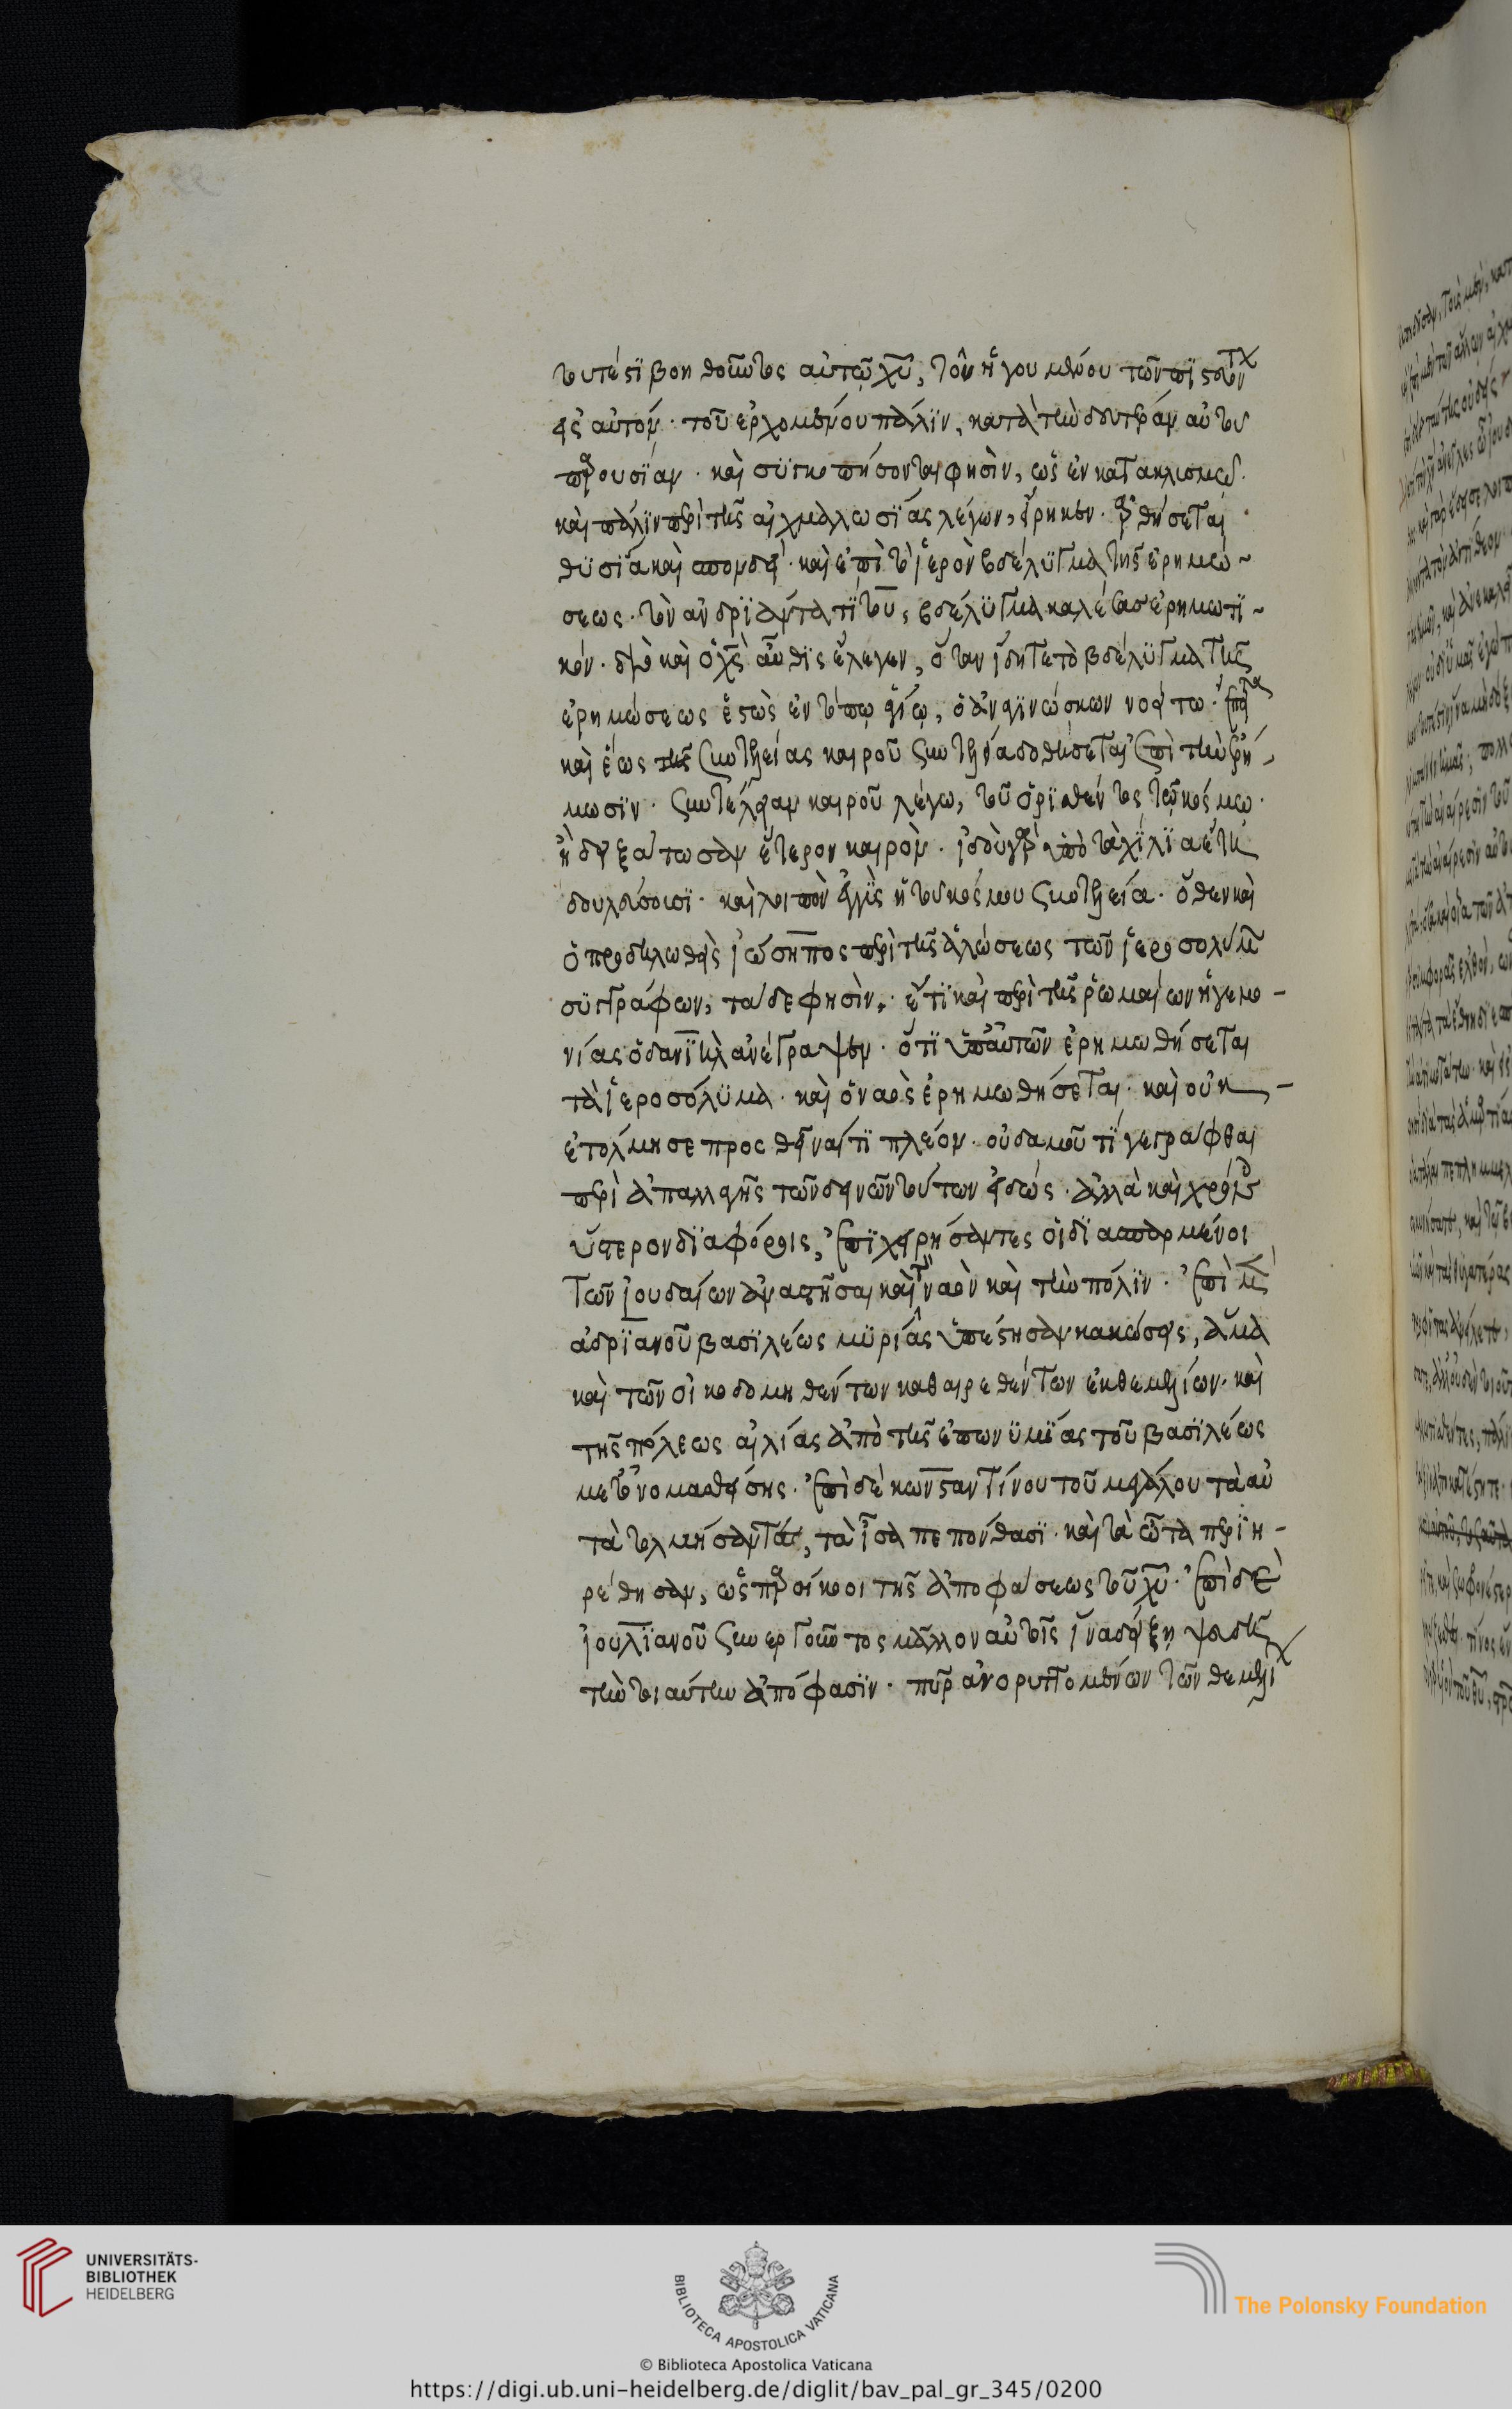 τουτέστι βοηθοῦντος αὐτῷ χυ, τοῦ ἡγουμένου τῶν πιστευόντων
εἰς αὐτόν · τοῦ ἐρχομένου πάλϊν, κατὰ τὴν δευτέραν αὐτοῦ
παρουσίαν · καὶ συγκοπήσονται φησὶν, ὡς ἐν κατακλισμῶ ·
καὶ πάλϊν περὶ τῆς αἰχμαλωσΐας λέγων, εἴρηκεν · ἀρθήσεται
θϋσΐα καὶ σπονδή · καὶ ἐπὶ τὸ ἱερὸν βδέλϋγμα τῆς ἐρημώ-
σεως · τὸν ἀνδριάντα τίτου, βδέλϋγμα καλέσας ἐρημωτϊ-
κόν · διὸ καὶ ὁ χς αὖθϊς ἔλεγεν, ὅταν ἴδητε τὸ βδέλϋγμα τῆς
ἐρημώσεως ἑστὼς ἐν τόπῳ ἁγίῳ, ὁ ἀναγϊνώσκων νοείτω · ἔπειτα
καὶ ἕως τῆς συντελείας καιροῦ συντέλεια δοθήσεται ἐπὶ τὴν ἐρή-
μωσϊν · συντέλειαν καιροῦ λέγω, τοῦ ὁρισθέντος τῷ κόσμω ·
ἢ δειξάτωσαν ἕτερον καιρόν · ἰδοὺ γὰρ ὑπὸ τὰ χίλϊα ἔτη
δουλεύουσϊ · καὶ λοιπὸν ἐγγὺς ἡ τοῦ κόσμου συντέλεια · ὅθεν καὶ
ὁ προδηλωθεὶς ἰώσηπος περὶ τῆς ἁλώσεως τῶν ἱεροσολύμων
συγγράφων, τάδε φησὶν · ἔτϊ καὶ περὶ τῆς ῥωμαίων ἡγεμο-
νίας ὁ δανιὴλ ἀνέγραψεν · ὅτϊ ὑπ' αὐτῶν ἐρημωθήσεται
τὰ ἱεροσόλϋμα · καὶ ὁ ναὸς ἐρημωθήσεται · καὶ οὐκ
ἐτόλμησε προσθεῖναί τϊ πλέον · οὐδαμοῦ τϊ γεγράφθαι
περὶ ἀπαλλαγῆς τῶν δεινῶν τούτων εἰδώς · ἀλλὰ καὶ χρόνοις
ὕστερον διαφόροις, ἐπϊχειρήσαντες οἱ δϊασπαρμένοι
τῶν ἰουδαίων ἀναστῆσαι καὶ τὸν ναὸν καὶ τὴν πόλϊν · ἐπὶ μὲν
ἀδρϊανοῦ βασϊλέως μϋρίας ὑπέστησαν κακώσεις, ἅμα
καὶ τῶν οἰκοδομηθέντων καθαιρεθέντων ἐκ θεμελίων · καὶ
τῆς πόλεως αἰλίας ἀπὸ τῆς ἐπωνϋμίας τοῦ βασϊλέως
μετονομασθείσης · ἐπὶ δὲ κωνσταντίνου τοῦ μεγάλου τὰ αὐ
τὰ τολμήσαντας, τὰ ἴσα πεπόνθασϊ · καὶ τὰ ὦτα περιη-
ρέθησαν, ὡς παρήκοοι τῆς ἀποφάσεως τοῦ χυ · ἐπὶ δὲ
ἰουλϊανοῦ συνεργοῦντος μᾶλλον αὐτοῖς ἵνα δείξῃ ψευδῆ
τὴν τοιαύτην ἀπόφασϊν · πῦρ ἀνορυττομένων τῶν θεμελίων
UNIVERSITÄTS-
BIBLIOTHEK
HEIDELBERG
BIBLIOTECA APOSTOLICA VATICANA
The Polonsky Foundation
© Biblioteca Apostolica Vaticana
https://digi.ub.uni-heidelberg.de/diglit/bav_pal_gr_345/0200